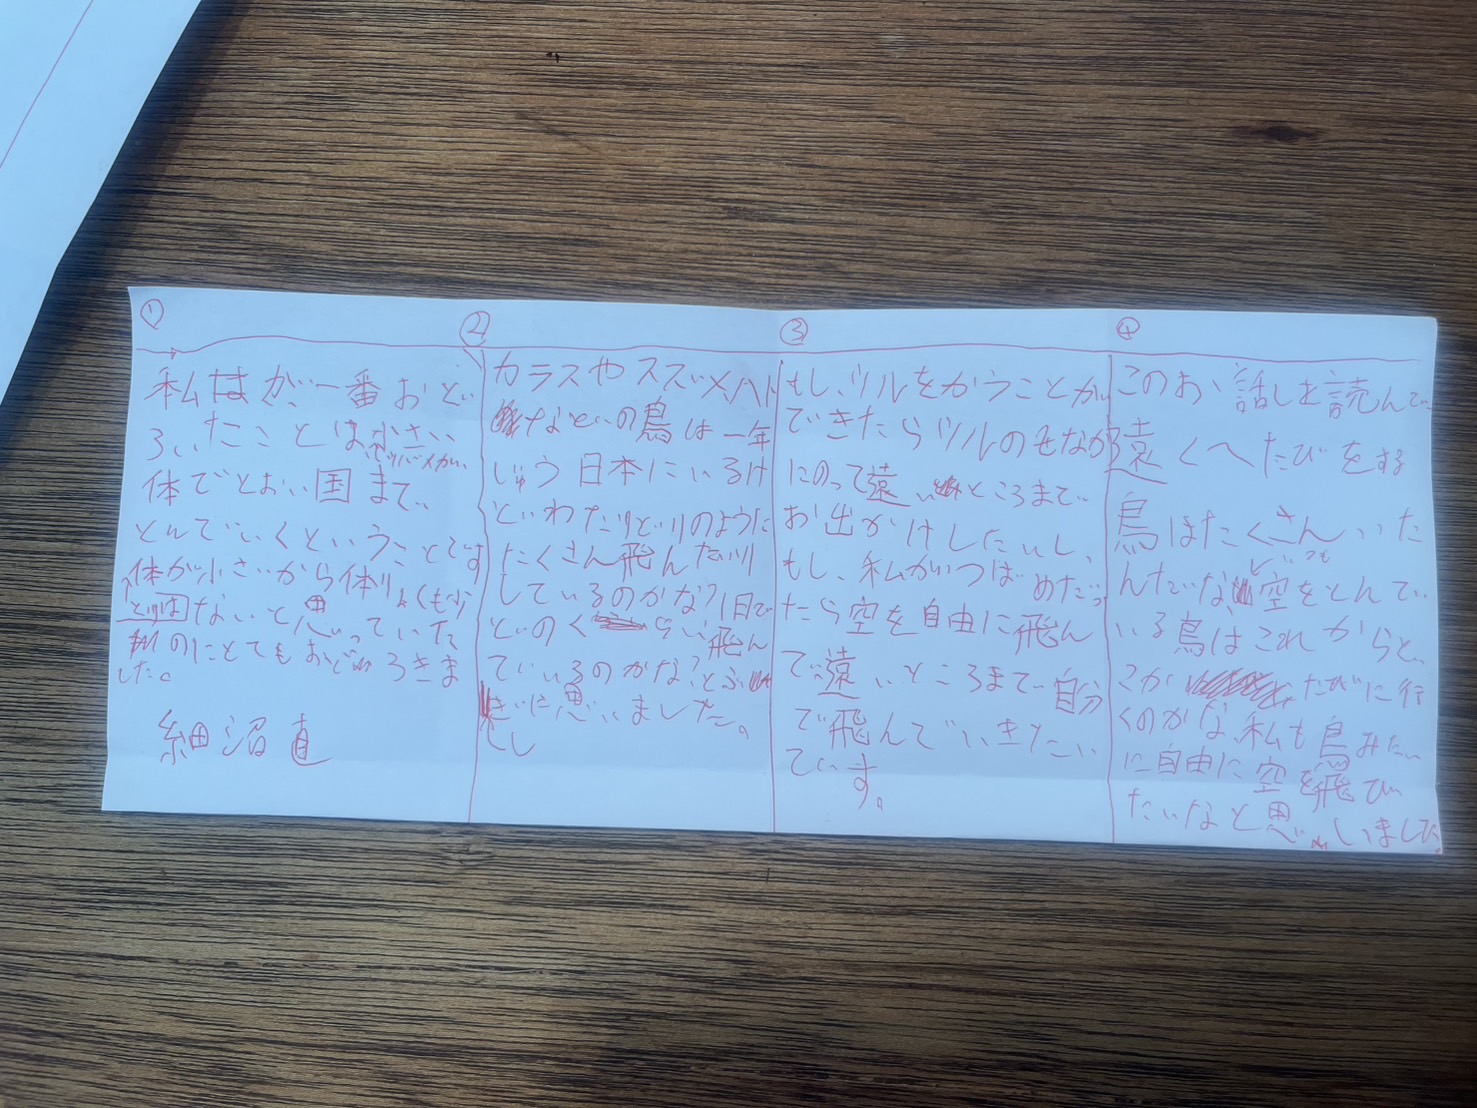 ①
私はが、一番おど
ろいたことは小さい
ツバメがい
体でとおい国まで
とんでいくということです
体が小さいから体りょくも少
ないと思っていた
のにとてもおどろきま
した。
細沼直
②
カラスやスズメ、ハト
などの鳥は一年
じゅう日本にいるけ
どわたりどりのように
たくさん飛んだり
しているのかな?1日で
どのくらい飛ん
でいるのかな?とふ
ぎに思いました。
し
③
もし、ツルをかうことが
できたらツルのせなか
にのって遠いところまで
お出かけしたいし、
もし、私がつばめだっ
たら空を自由に飛ん
で遠いところまで自分
で飛んでいきたい
です。
④
このお話しを読んで
遠くへたびをする
鳥はたくさんいた
いつも
んだな、空をとんで
いる鳥はこれからど
こか たびに行
くのかな、私も鳥みたい
に自由に空を飛び
たいなと思いました。